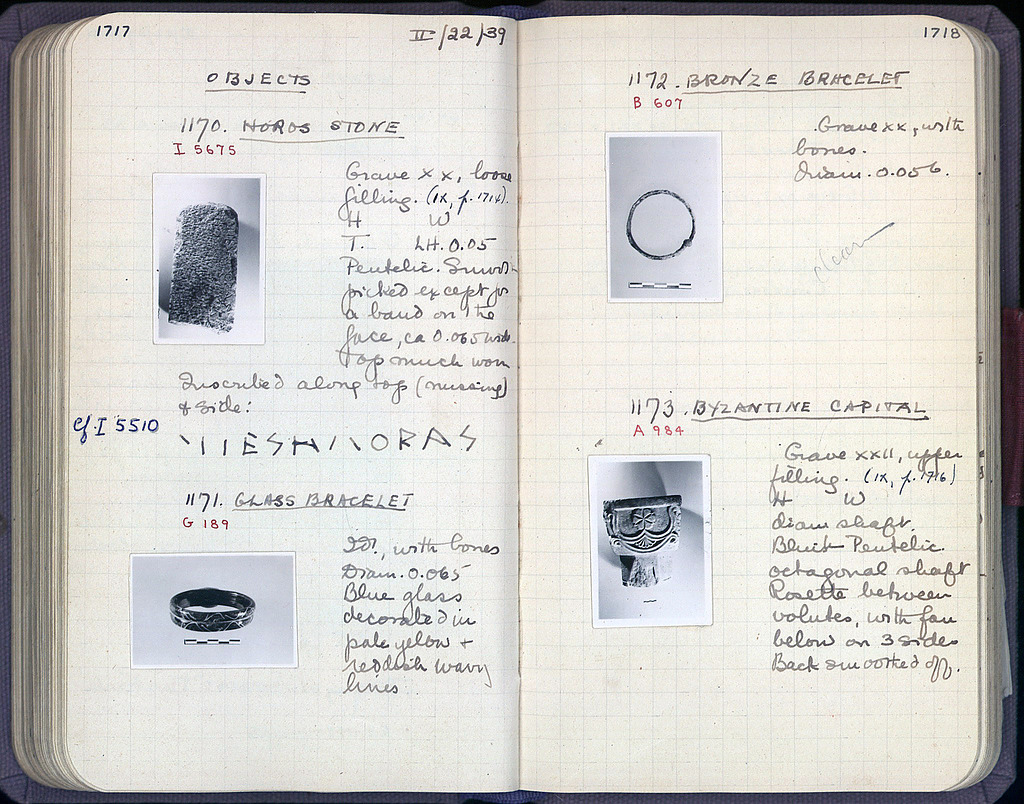 1717
II/22/39
OBJECTS
1170. HOROS STONE
I 5675
Grave XX, loose
filling. (IX, p. 1714).
H W
T. LH. 0.05
Pentelic. Smooth
picked except for
a band on the
face, ca 0.065 wide.
Top much worn
Inscribed along top (missing)
& side:
cf. I 5510
1171. GLASS BRACELET
G 189
Id., with bones
Diam. 0.065
Blue glass
decorated in
pale yellow +
reddish wavy
lines
1718
1172. BRONZE BRACELET
B 607
Grave XX, with
bones.
Diam. 0.056.
clean
1173. BYZANTINE CAPITAL
A 984
Grave XXII, upper
filling. (IX, p. 1716)
H W
diam shaft.
Bluish Pentelic.
octagonal shaft
Rosette between
volutes, with fan
below on 3 sides
Back smoothed off.